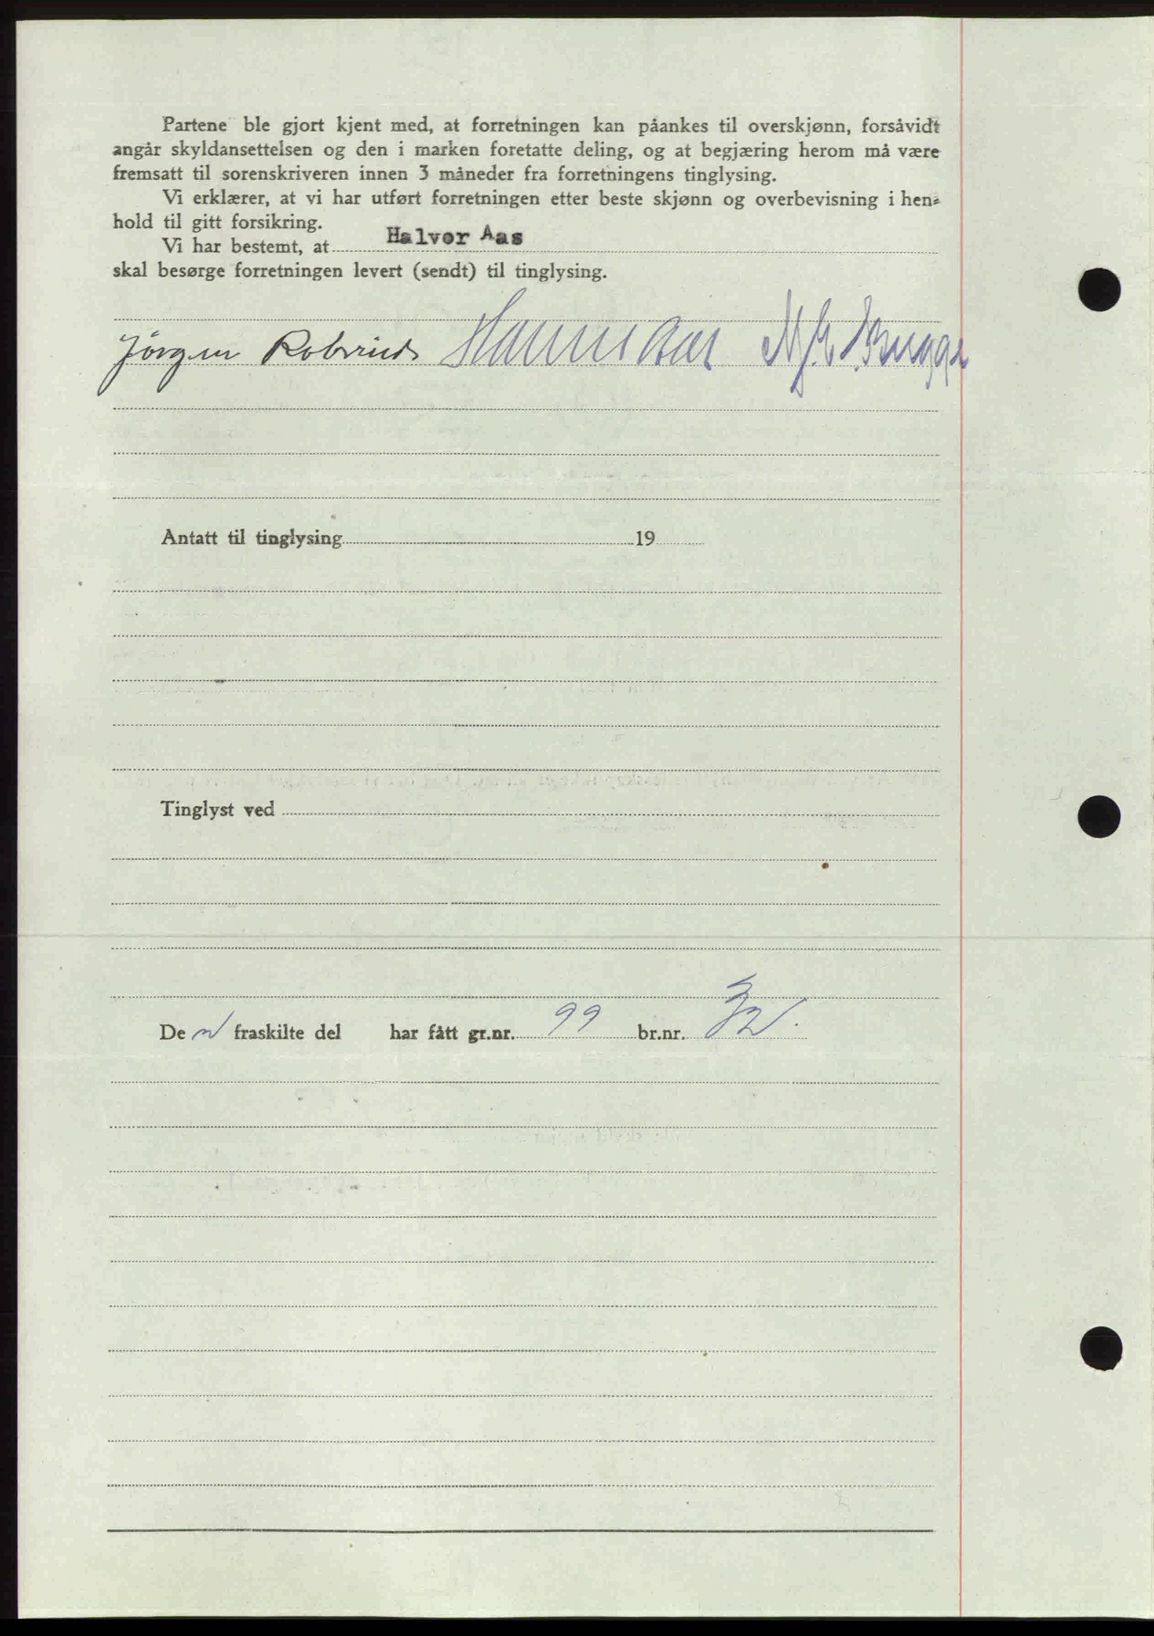 Partene ble gjort kjent med, at forretningen kan påankes til overskjønn, forsåvidt
angår skyldansettelsen og den i marken foretatte deling, og at begjæring herom må være
fremsatt til sorenskriveren innen 3 måneder fra forretningens tinglysing.
Vi erklærer, at vi har utført forretningen etter beste skjønn og overbevisning i hen-
hold til gitt forsikring.
Vi har bestemt, at Halvor Aas
skal besørge forretningen levert (sendt) til tinglysing.
Jörgen
Antatt til tinglysing 19
Tinglyst ved
De n fraskilte del har fått gr.nr. 99 br.nr. 32.